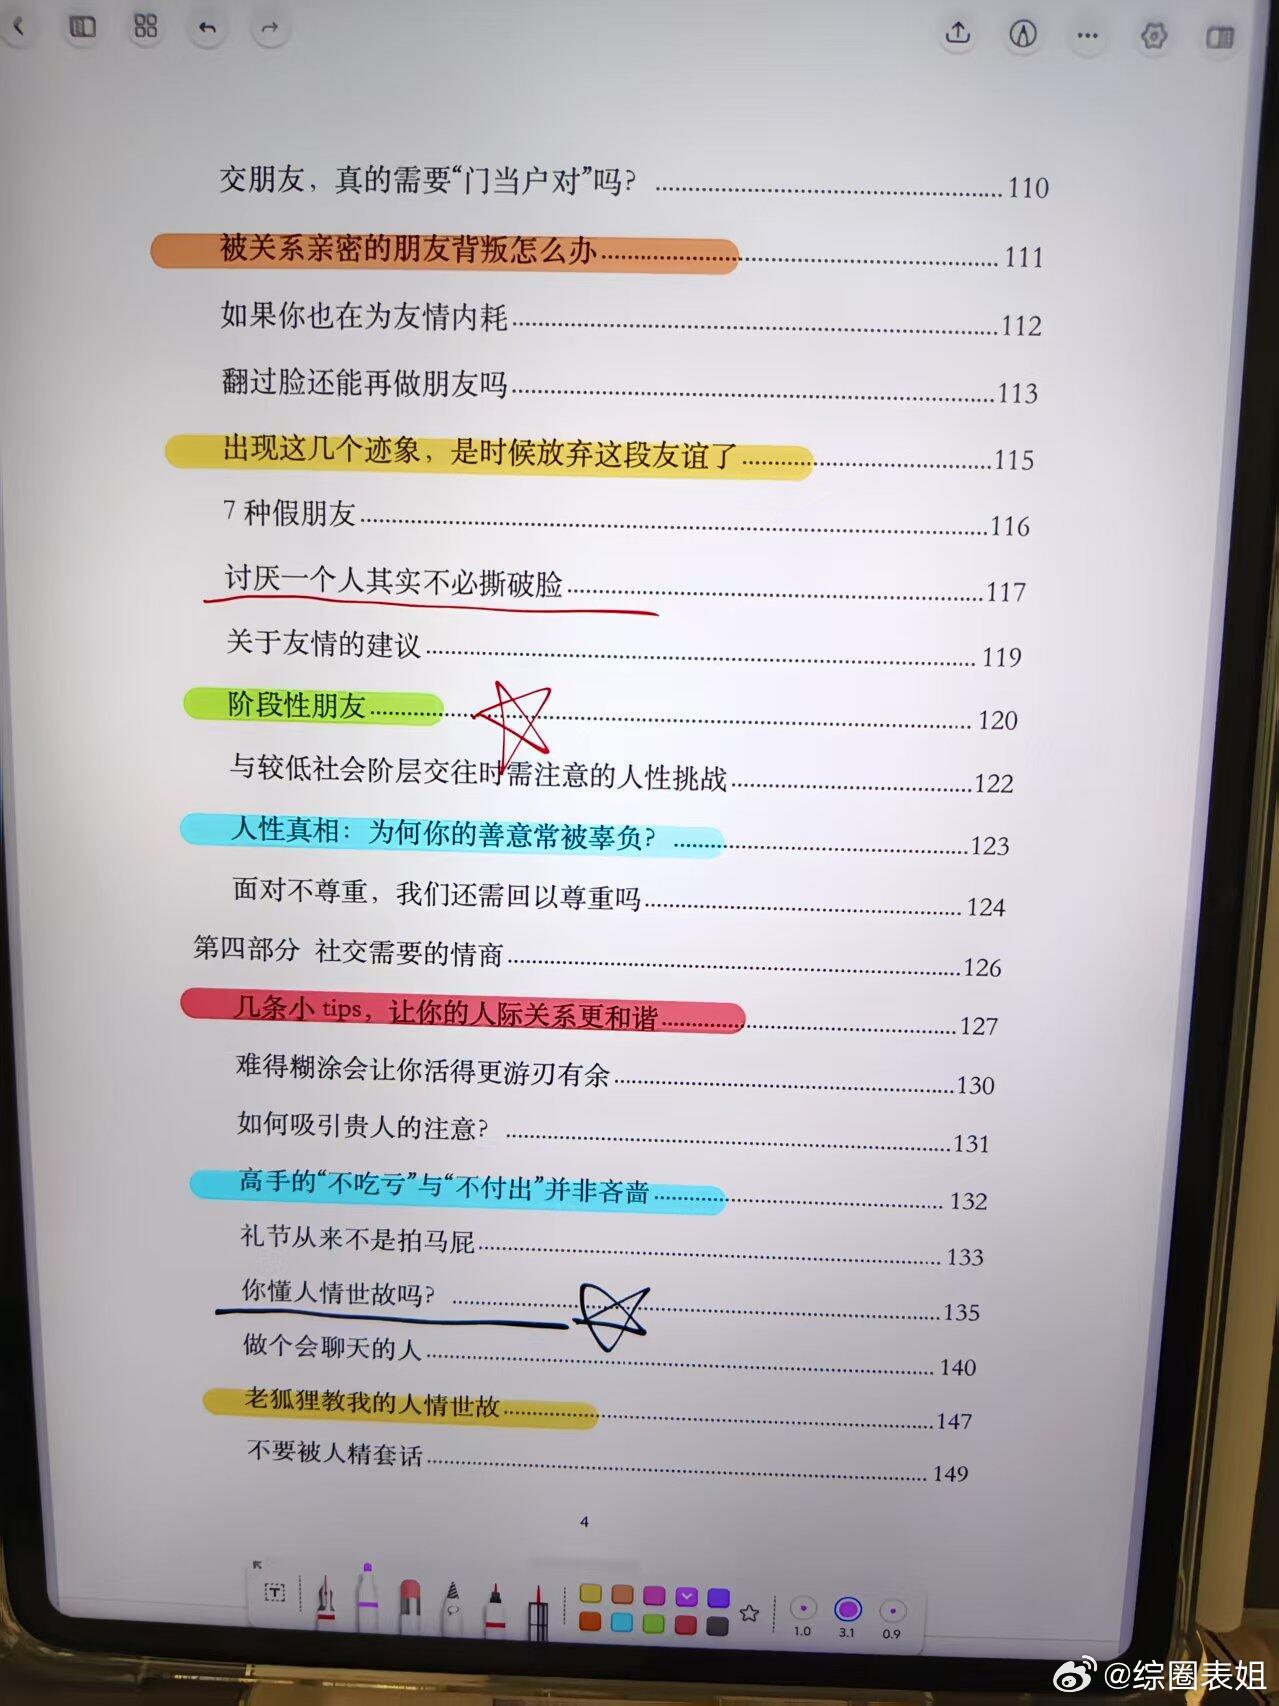 交朋友，真的需要“门当户对”吗？ ........ 110
被关系亲密的朋友背叛怎么办 ........ 111
如果你也在为友情内耗 ........ 112
翻过脸还能再做朋友吗 ........ 113
出现这几个迹象，是时候放弃这段友谊了 ........ 115
7 种假朋友 ........ 116
讨厌一个人其实不必撕破脸 ........ 117
关于友情的建议 ........ 119
阶段性朋友 ........ 120
与较低社会阶层交往时需注意的人性挑战 ........ 122
人性真相：为何你的善意常被辜负？ ........ 123
面对不尊重，我们还需回以尊重吗 ........ 124
第四部分 社交需要的情商 ........ 126
几条小 tips，让你的人际关系更和谐 ........ 127
难得糊涂会让你活得更游刃有余 ........ 130
如何吸引贵人的注意？ ........ 131
高手的“不吃亏”与“不付出”并非吝啬 ........ 132
礼节从来不是拍马屁 ........ 133
你懂人情世故吗？ ........ 135
做个会聊天的人 ........ 140
老狐狸教我的人情世故 ........ 147
不要被人精套话 ........ 149
4
T
1.0 3.1 0.9
@综圈表姐